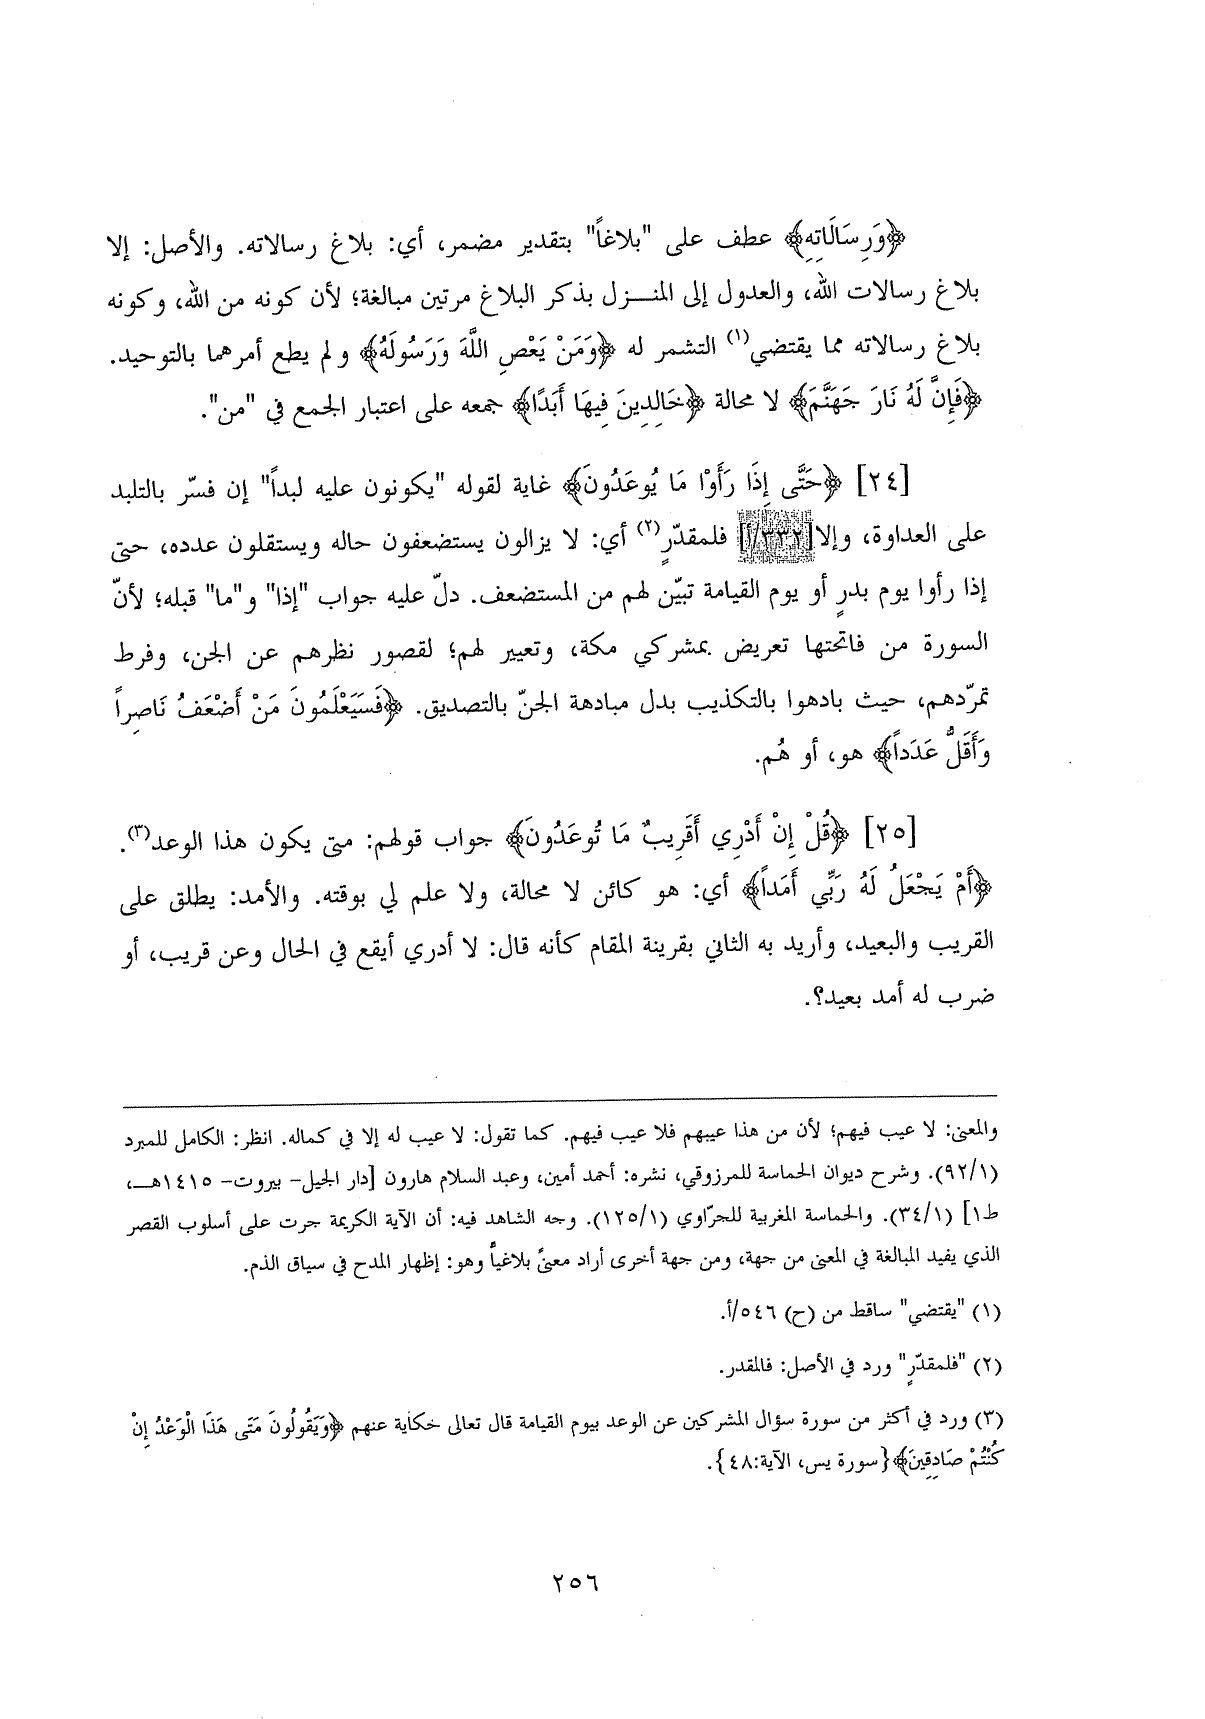 ﴿وَرِسَالَاتِهِ﴾ عطف على "بلاغاً" بتقدير مضمر، أي: بلاغ رسالاته. والأصل: إلا
بلاغ رسالات الله، والعدول إلى المنـزل بذكر البلاغ مرتين مبالغة؛ لأن كونه من الله، وكونه
بلاغ رسالاته مما يقتضي(١) التشمر له ﴿وَمَنْ يَعْصِ اللَّهَ وَرَسُولَهُ﴾ ولم يطع أمرهما بالتوحيد.
﴿فَإِنَّ لَهُ نَارَ جَهَنَّمَ﴾ لا محالة ﴿خَالِدِينَ فِيهَا أَبَدًا﴾ جمعه على اعتبار الجمع في "من".
[٢٤] ﴿حَتَّى إِذَا رَأَوْا مَا يُوعَدُونَ﴾ غاية لقوله "يكونون عليه لبداً" إن فسّر بالتلبد
على العداوة، وإلا[٣٣٢/أ] فلمقدّرٍ(٢) أي: لا يزالون يستضعفون حاله ويستقلون عدده، حتى
إذا رأوا يوم بدرٍ أو يوم القيامة تبيّن لهم من المستضعف. دلّ عليه جواب "إذا" و"ما" قبله؛ لأنّ
السورة من فاتحتها تعريض بمشركي مكة، وتعيير لهم؛ لقصور نظرهم عن الجن، وفرط
تمرّدهم، حيث بادهوا بالتكذيب بدل مبادهة الجنّ بالتصديق. ﴿فَسَيَعْلَمُونَ مَنْ أَضْعَفُ نَاصِراً
وَأَقَلُّ عَدَداً﴾ هو، أو هُم.
[٢٥] ﴿قُلْ إِنْ أَدْرِي أَقَرِيبٌ مَا تُوعَدُونَ﴾ جواب قولهم: متى يكون هذا الوعد(٣).
﴿أَمْ يَجْعَلُ لَهُ رَبِّي أَمَداً﴾ أي: هو كائن لا محالة، ولا علم لي بوقته. والأمد: يطلق على
القريب والبعيد، وأريد به الثاني بقرينة المقام كأنه قال: لا أدري أيقع في الحال وعن قريب، أو
ضرب له أمد بعيد؟.
والمعنى: لا عيب فيهم؛ لأن من هذا عيبهم فلا عيب فيهم. كما تقول: لا عيب له إلا في كماله. انظر: الكامل للمبرد
(٩٢/١). وشرح ديوان الحماسة للمرزوقي، نشره: أحمد أمين، وعبد السلام هارون [دار الجيل- بيروت- ١٤١٥هـ،
ط١] (٣٤/١). والحماسة المغربية للجرّاوي (١٢٥/١). وجه الشاهد فيه: أن الآية الكريمة جرت على أسلوب القصر
الذي يفيد المبالغة في المعنى من جهة، ومن جهة أخرى أراد معنىً بلاغياً وهو: إظهار المدح في سياق الذم.
(١) "يقتضي" ساقط من (ح) ٥٤٦/أ.
(٢) "فلمقدّرٍ" ورد في الأصل: فالمقدر.
(٣) ورد في أكثر من سورة سؤال المشركين عن الوعد بيوم القيامة قال تعالى حكاية عنهم ﴿وَيَقُولُونَ مَتَى هَذَا الْوَعْدُ إِنْ
كُنْتُمْ صَادِقِينَ﴾{سورة يس، الآية:٤٨}.
٢٥٦